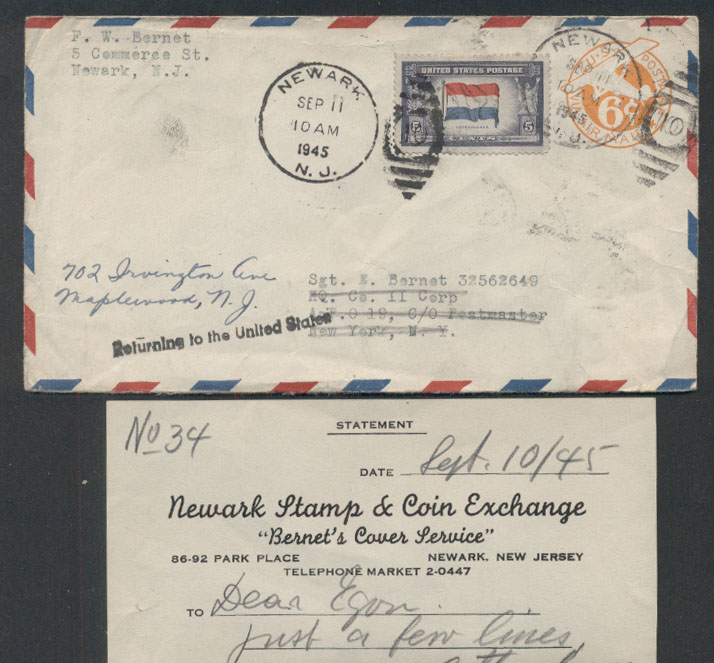 F. W. Bernet
5 Commerce St.
Newark, N.J.
NEWARK
SEP 11
10 AM
1945
N. J.
UNITED STATES POSTAGE
5 5
CENTS
NEWARK
SEP 11
10 AM
1945
N. J.
U·S· POSTAGE
6¢
AIR MAIL
10
702 Irvington Ave
Maplewood, N. J.
Sgt. E. Bernet 32562649
HQ. Co. II Corp
A.P.O 19, C/O Postmaster
New York, N. Y.
Returning to the United States
No 34
STATEMENT
DATE Sept. 10/45
Newark Stamp & Coin Exchange
"Bernet's Cover Service"
86-92 PARK PLACE NEWARK, NEW JERSEY
TELEPHONE MARKET 2-0447
TO Dear Egon
just a few lines,